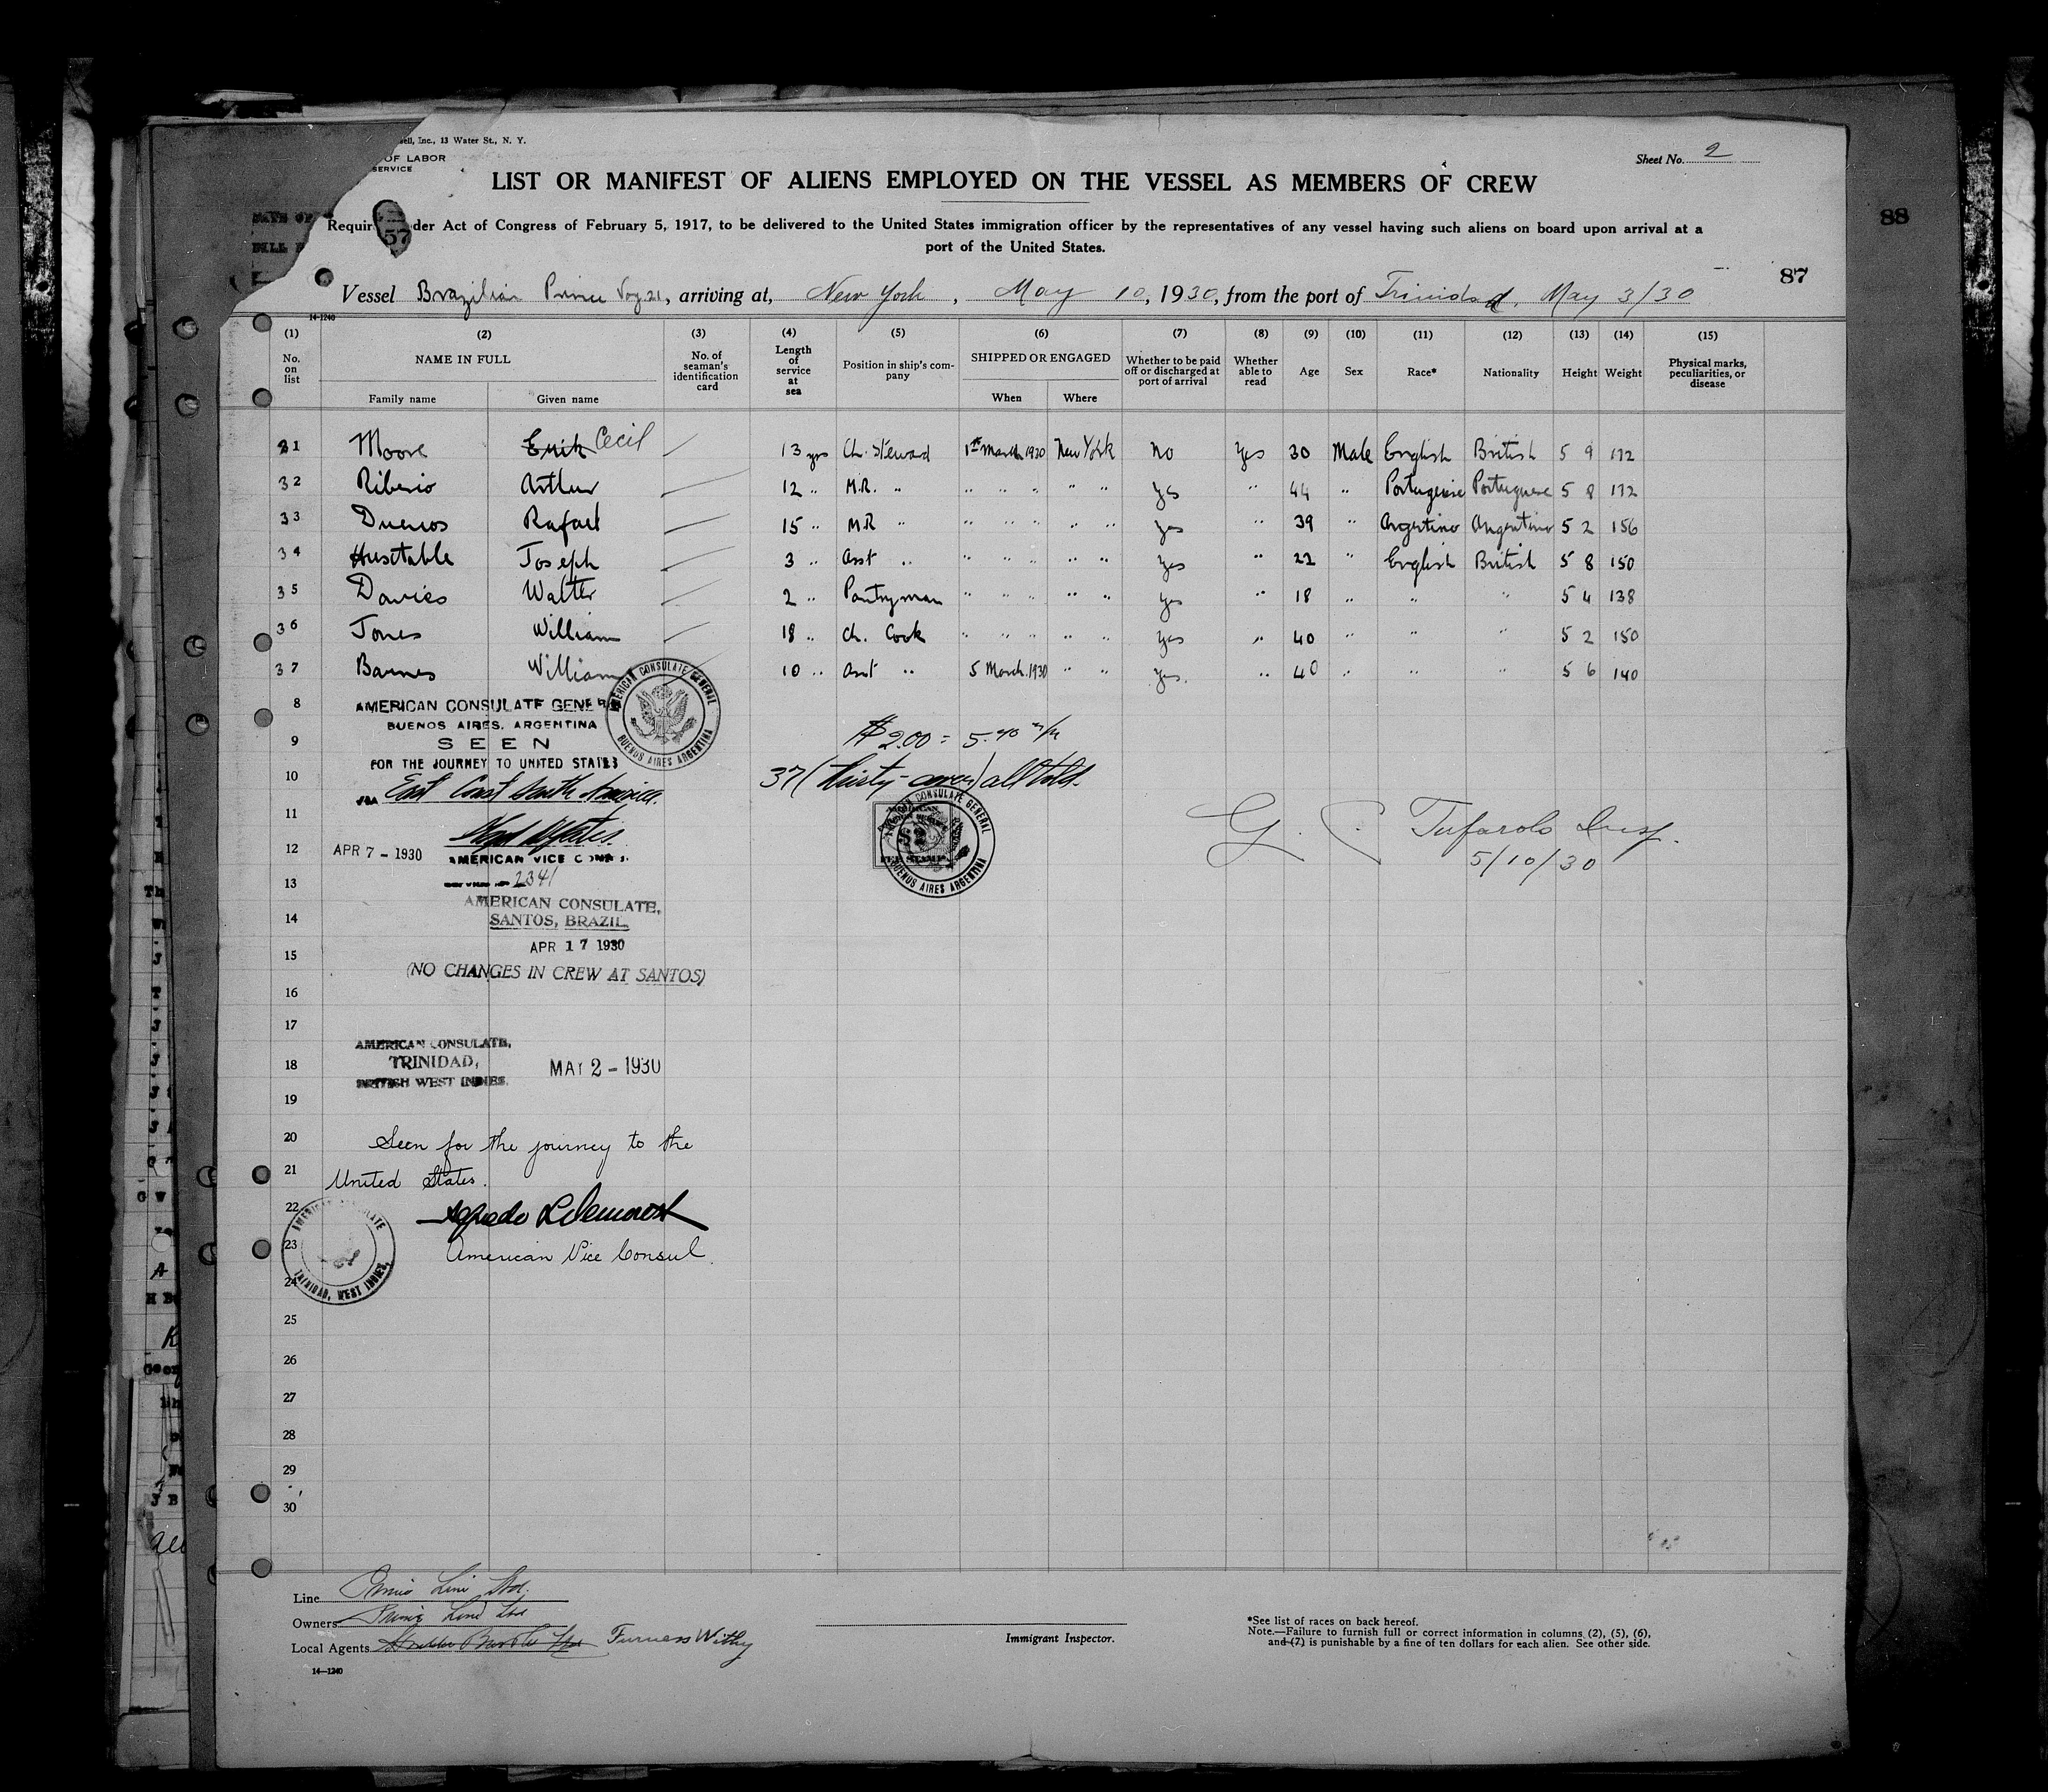 sell, Inc., 13 Water St., N. Y.
OF LABOR
SERVICE
Sheet No. 2
LIST OR MANIFEST OF ALIENS EMPLOYED ON THE VESSEL AS MEMBERS OF CREW
57
88
Requir der Act of Congress of February 5, 1917, to be delivered to the United States immigration officer by the representatives of any vessel having such aliens on board upon arrival at a
port of the United States.
87
Vessel Brazilian Prince Voy 21, arriving at, New York, May 10, 1930, from the port of Trinidad, May 3/30
14-1240
(1) (2) (3) (4) (5) (6) (7) (8) (9) (10) (11) (12) (13) (14) (15)
No. on list NAME IN FULL No. of seaman's identification card Length of service at sea Position in ship's company SHIPPED OR ENGAGED Whether to be paid off or discharged at port of arrival Whether able to read Age Sex Race* Nationality Height Weight Physical marks, peculiarities, or disease
Family name Given name When Where
31 Moore Erik Cecil 13 yrs Ch. Steward 1st March 1930 New York No Yes 30 Male English British 5 9 172
32 Riberio Arthur 12 " M.R. " " " " " " Yes " 44 " Portuguese Portuguese 5 8 172
33 Duenos Rafael 15 " M.R " " " " " " Yes " 39 " Argentino Argentino 5 2 156
34 Hustable Joseph 3 " Asst " " " " " " Yes " 22 " English British 5 8 150
35 Davies Walter 2 " Pantryman " " " " " Yes " 18 " " " 5 4 138
36 Jones William 18 " Ch. Cook " " " " " Yes " 40 " " " 5 2 150
37 Barnes William 10 " Asst " 5 March 1930 " " Yes. " 40 " " " 5 6 140
8 AMERICAN CONSULATE GENER
BUENOS AIRES, ARGENTINA
AMERICAN CONSULATE GENERAL
BUENOS AIRES ARGENTINA
9 SEEN
$2.00 = 5.40 m/n
FOR THE JOURNEY TO UNITED STATES
10 37 (thirty-seven) all told.
VIA East Coast South America.
11
G. C. Tufarolo Insp.
5/10/30
AMERICAN CONSULATE GENERAL
BUENOS AIRES ARGENTINA
12 APR 7 - 1930 AMERICAN VICE CONS
13 2341
AMERICAN CONSULATE,
14 SANTOS, BRAZIL.
15 APR 17 1930
(NO CHANGES IN CREW AT SANTOS)
16
17
AMERICAN CONSULATE,
18 TRINIDAD, MAY 2 - 1930
BRITISH WEST INDIES.
19
20 Seen for the journey to the
21 United States.
22 Alfredo L Demorest
23 American Vice Consul.
AMERICAN CONSULATE
TRINIDAD, WEST INDIES
24
25
26
27
28
29
30
Line Prince Line Ltd.
Owners Prince Line Ltd
Local Agents Furness Withy
Immigrant Inspector.
*See list of races on back hereof.
Note.—Failure to furnish full or correct information in columns (2), (5), (6),
and (7) is punishable by a fine of ten dollars for each alien. See other side.
14—1240